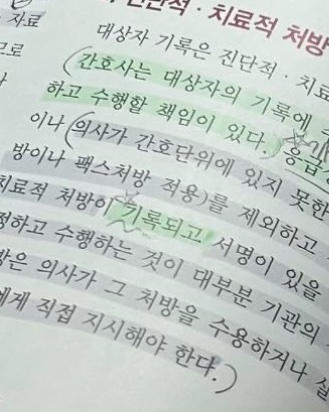 진단적 · 치료적 처방
자료 대상자 기록은 진단적 · 치료
므로 (간호사는 대상자의 기록에
하고 수행할 책임이 있다.) 응급
이나 (의사가 간호단위에 있지 못한
방이나 팩스처방 적용)를 제외하고
치료적 처방이 기록되고 서명이 있을
정하고 수행하는 것이 대부분 기관의
방은 의사가 그 처방을 수용하거나 실
에게 직접 지시해야 한다.)